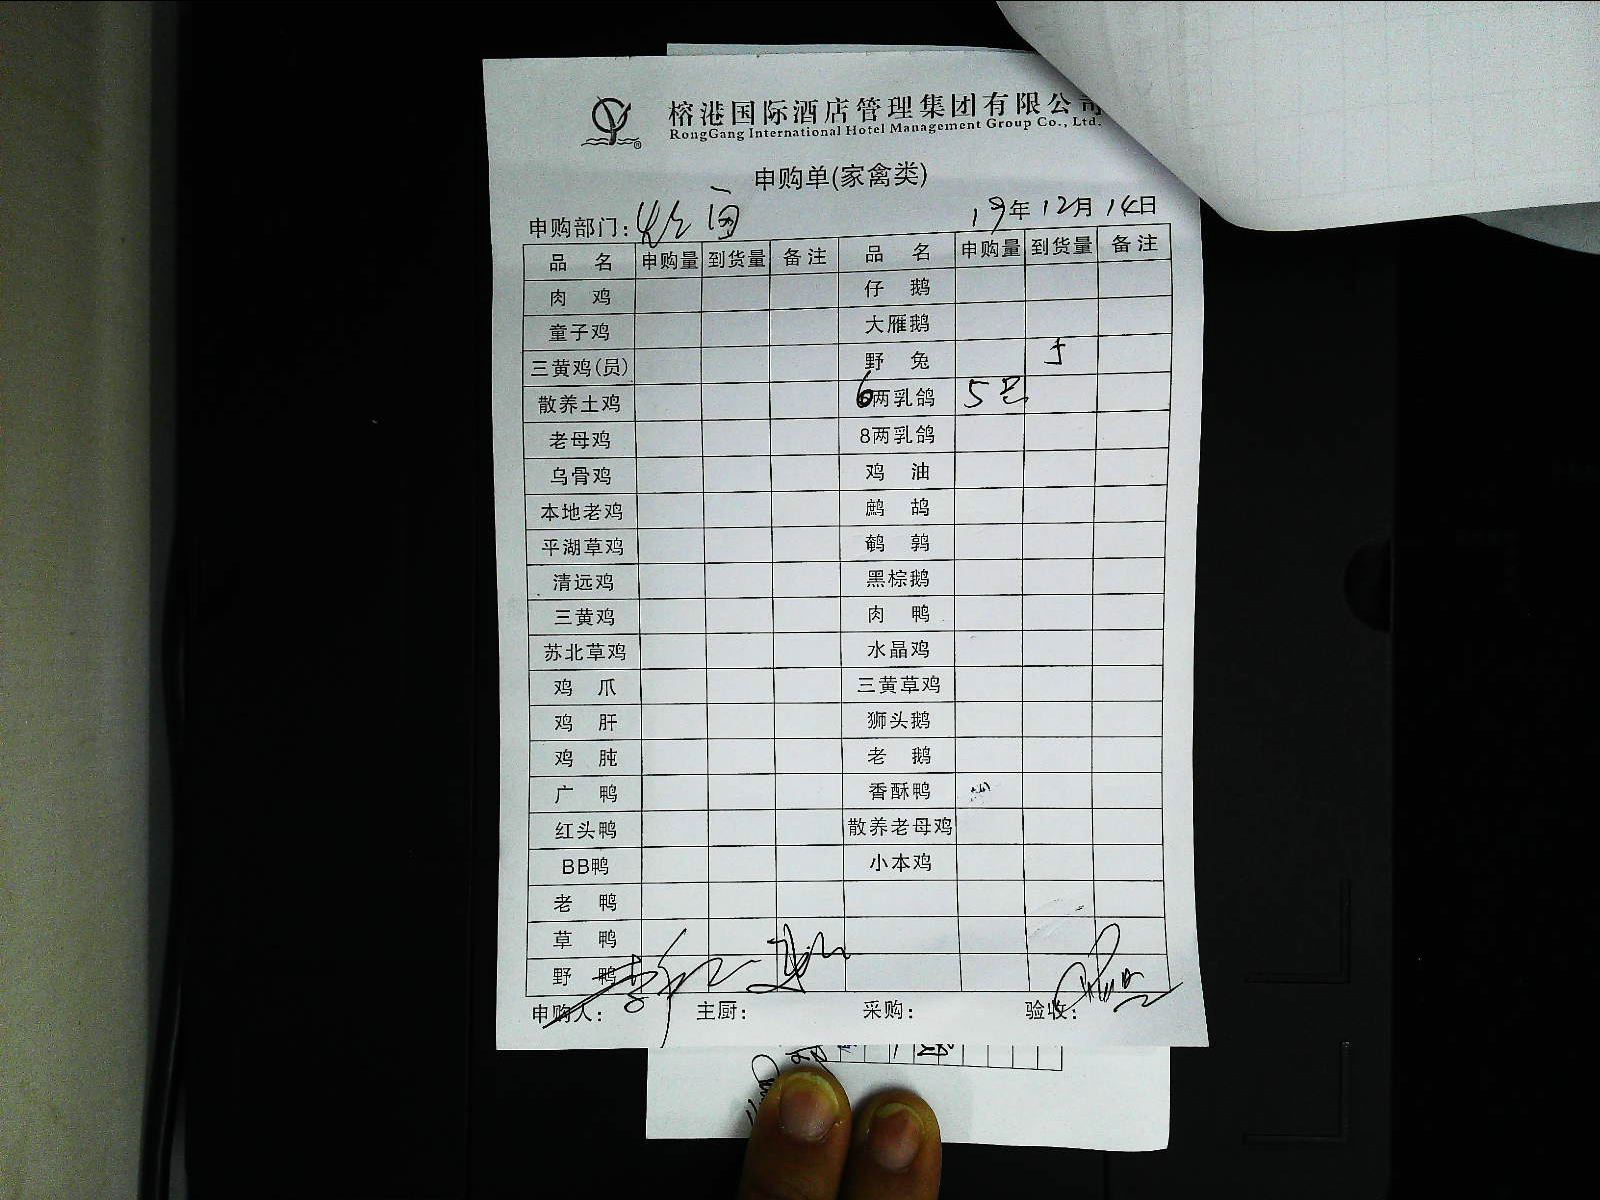 榕港国际酒店管理集团有限公司
RongGang International Hotel Management Group Co., Ltd.
申购单(家禽类)
申购部门:
19年12月14日
品 名 申购量 到货量 备注 品 名 申购量 到货量 备注
肉 鸡 仔 鹅
童子鸡 大雁鹅
三黄鸡(员) 野 兔 5
散养土鸡 6两乳鸽 5只
老母鸡 8两乳鸽
乌骨鸡 鸡 油
本地老鸡 鹧 鸪
平湖草鸡 鹌 鹑
清远鸡 黑棕鹅
三黄鸡 肉 鸭
苏北草鸡 水晶鸡
鸡 爪 三黄草鸡
鸡 肝 狮头鹅
鸡 肫 老 鹅
广 鸭 香酥鸭
红头鸭 散养老母鸡
BB鸭 小本鸡
老 鸭
草 鸭
野 鸭
申购人: 主厨: 采购: 验收: